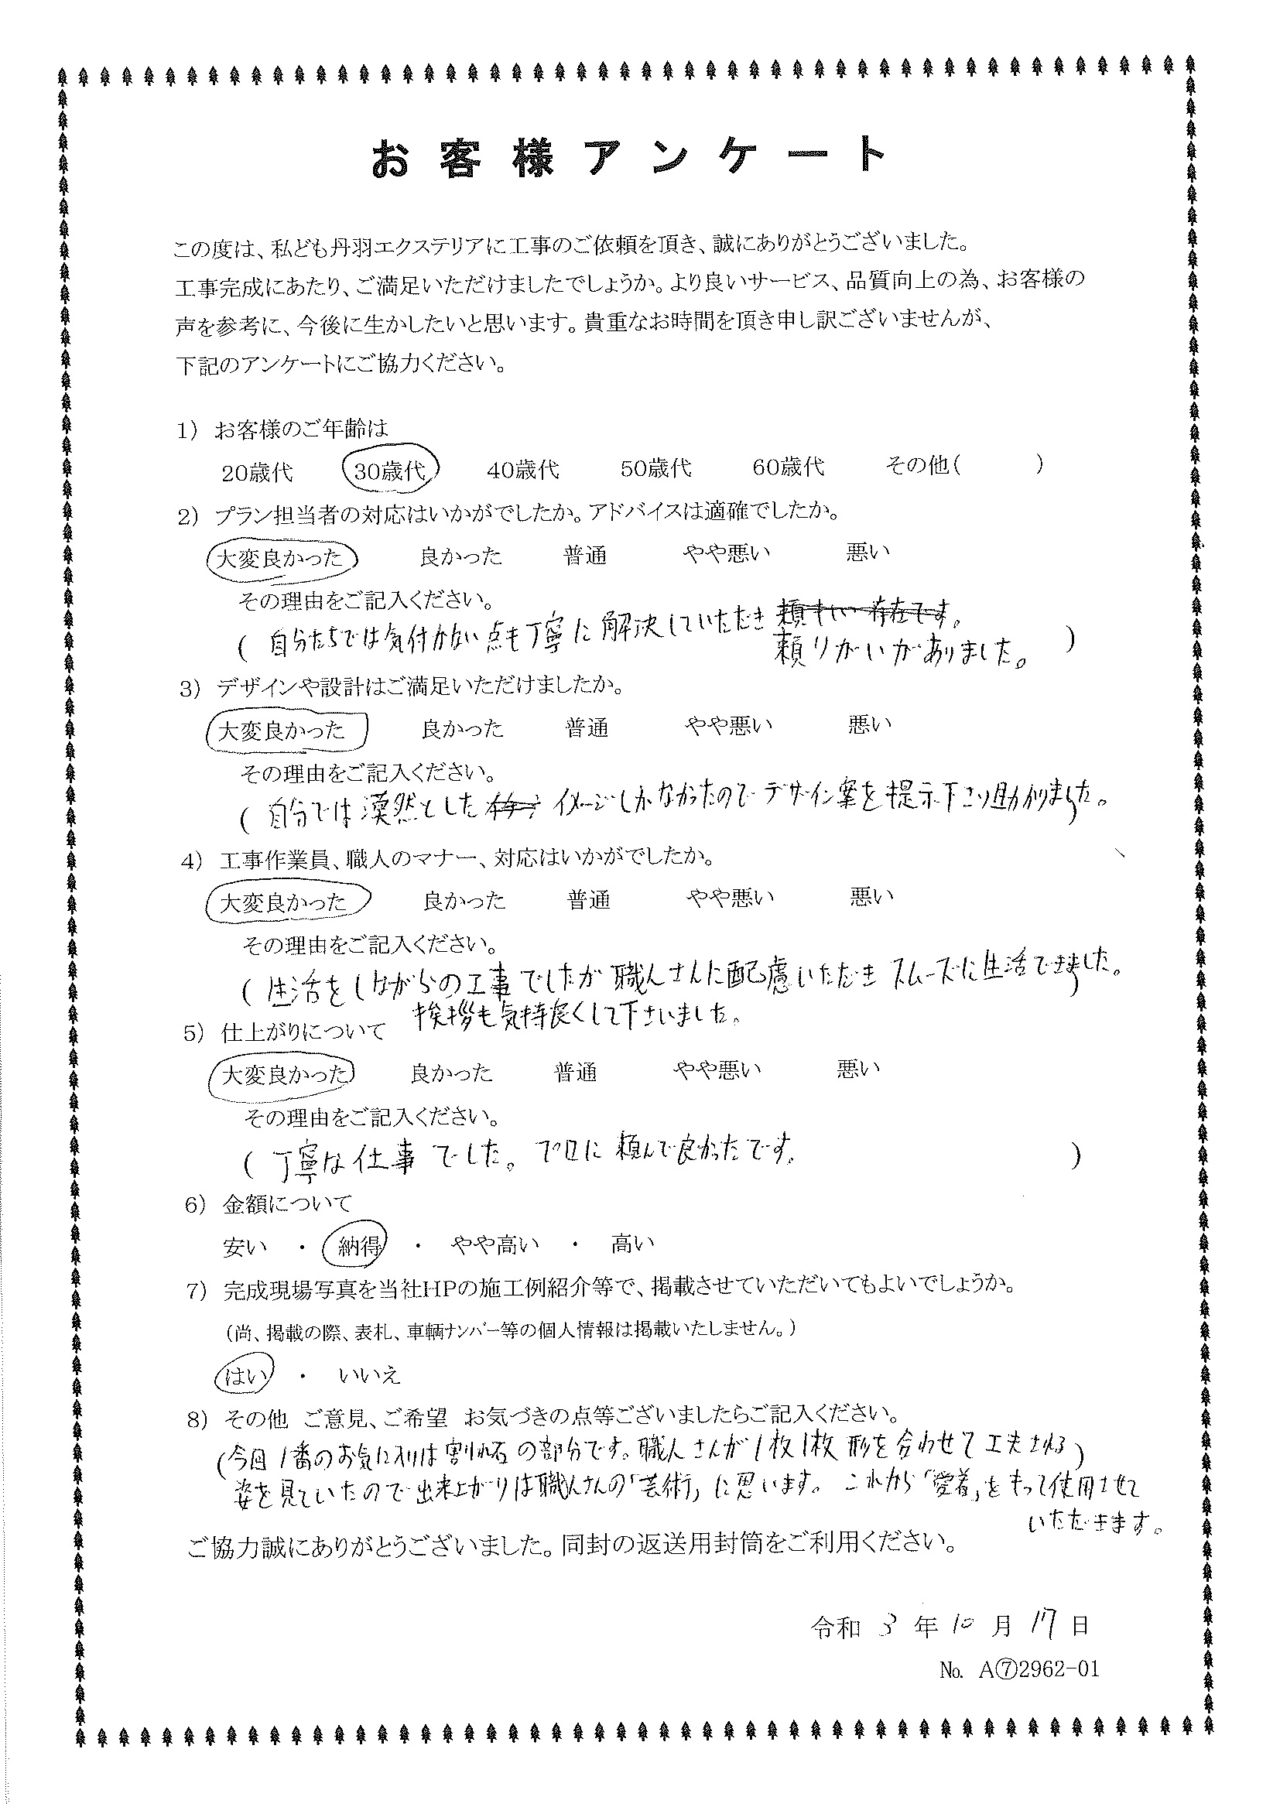 お客様アンケート
この度は、私ども丹羽エクステリアに工事のご依頼を頂き、誠にありがとうございました。
工事完成にあたり、ご満足いただけましたでしょうか。より良いサービス、品質向上の為、お客様の
声を参考に、今後に生かしたいと思います。貴重なお時間を頂き申し訳ございませんが、
下記のアンケートにご協力ください。
1) お客様のご年齢は
20歳代 30歳代 40歳代 50歳代 60歳代 その他( )
2) プラン担当者の対応はいかがでしたか。アドバイスは適確でしたか。
大変良かった 良かった 普通 やや悪い 悪い
その理由をご記入ください。
( 自分たちでは気付かない点も丁寧に解決していただき
頼りがいがありました。 )
3) デザインや設計はご満足いただけましたか。
大変良かった 良かった 普通 やや悪い 悪い
その理由をご記入ください。
( 自分では漠然とした イメージしかなかったのでデザイン案を提示下さり助かりました。)
4) 工事作業員、職人のマナー、対応はいかがでしたか。
大変良かった 良かった 普通 やや悪い 悪い
その理由をご記入ください。
( 生活をしながらの工事でしたが職人さんに配慮いただきスムーズに生活できました。)
挨拶も気持良くして下さいました。
5) 仕上がりについて
大変良かった 良かった 普通 やや悪い 悪い
その理由をご記入ください。
( 丁寧な仕事でした。プロに頼んで良かったです。 )
6) 金額について
安い ・ 納得 ・ やや高い ・ 高い
7) 完成現場写真を当社HPの施工例紹介等で、掲載させていただいてもよいでしょうか。
(尚、掲載の際、表札、車輌ナンバー等の個人情報は掲載いたしません。)
はい ・ いいえ
8) その他 ご意見、ご希望 お気づきの点等ございましたらご記入ください。
(今回1番のお気に入りは割れ石の部分です。職人さんが1枚1枚形を合わせて工夫される)
姿を見ていたので出来上がりは職人さんの「芸術」に思います。これから「愛着」をもって使用させて
いただきます。
ご協力誠にありがとうございました。同封の返送用封筒をご利用ください。
令和 3 年 10 月 17 日
No. A⑦2962-01